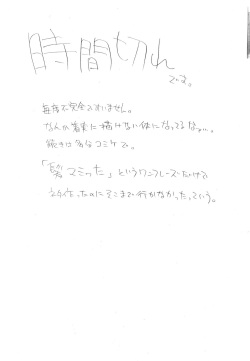 時間切れ
です。
毎度不完全ですいません。
なんか着実に描けない体になってるなぁ…。
続きは多分コミケで。
「髪マミった」というワンフレーズだけで
ネタ作ったのにそこまで行かなかったっていう。